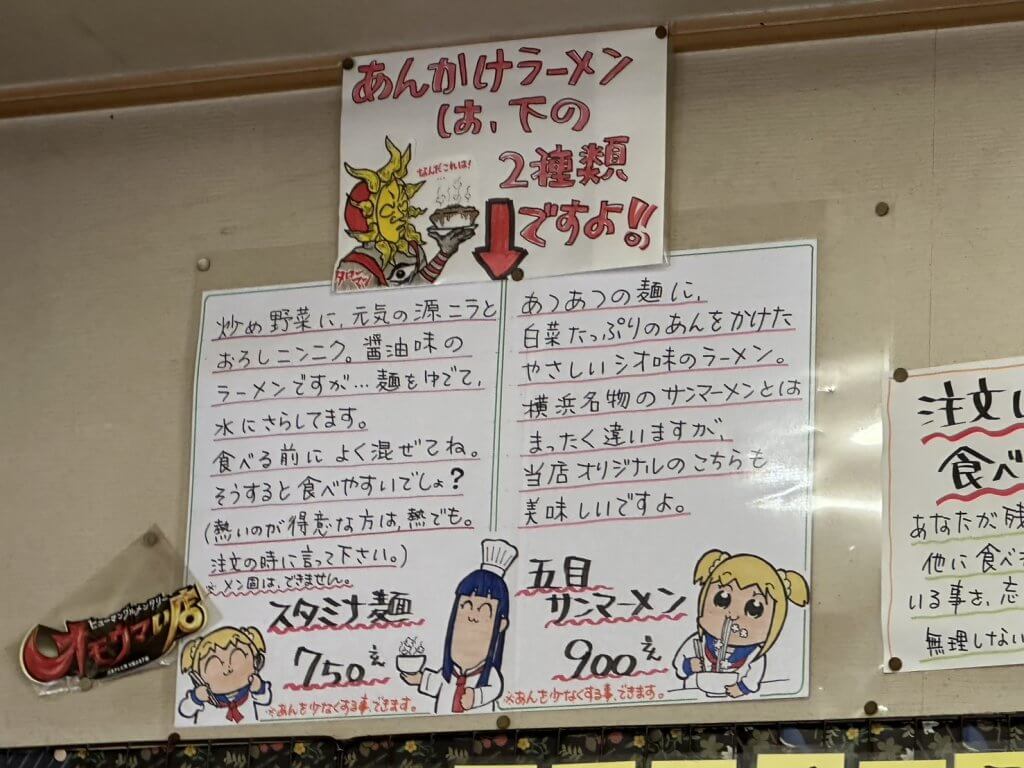 あんかけラーメン
は、下の
2種類
ですよ!!
なんだこれは!
炒め野菜に、元気の源ニラと
おろしニンニク。醤油味の
ラーメンですが…麺をゆでて、
水にさらしてます。
食べる前に よく混ぜてね。
そうすると食べやすいでしょ?
(熱いのが得意な方は、熱でも。
注文の時に言って下さい。)
※メン固は、できません。
スタミナ麺
750円
※あんを少なくする事、できます。
あつあつの麺に、
白菜たっぷりのあんをかけた
やさしいシオ味のラーメン。
横浜名物のサンマーメンとは
まったく違いますが、
当店オリジナルのこちらも
美味しいですよ。
五目
サンマーメン
900円
※あんを少なくする事、できます。
ヒューマングルメンタリー
オモウマい店
注文し
食べ
あなたが残
他に食べ
いる事を、忘
無理しない